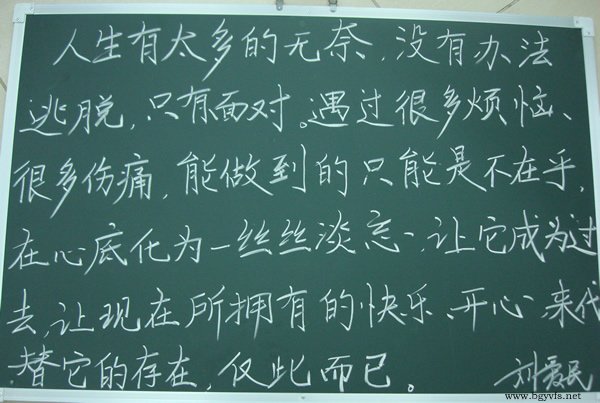 人生有太多的无奈,没有办法
逃脱,只有面对。遇过很多烦恼、
很多伤痛,能做到的只能是不在乎,
在心底化为一丝丝淡忘,让它成为过
去,让现在所拥有的快乐、开心,来代
替它的存在,仅此而已。
刘爱民
www.bgyvfs.net